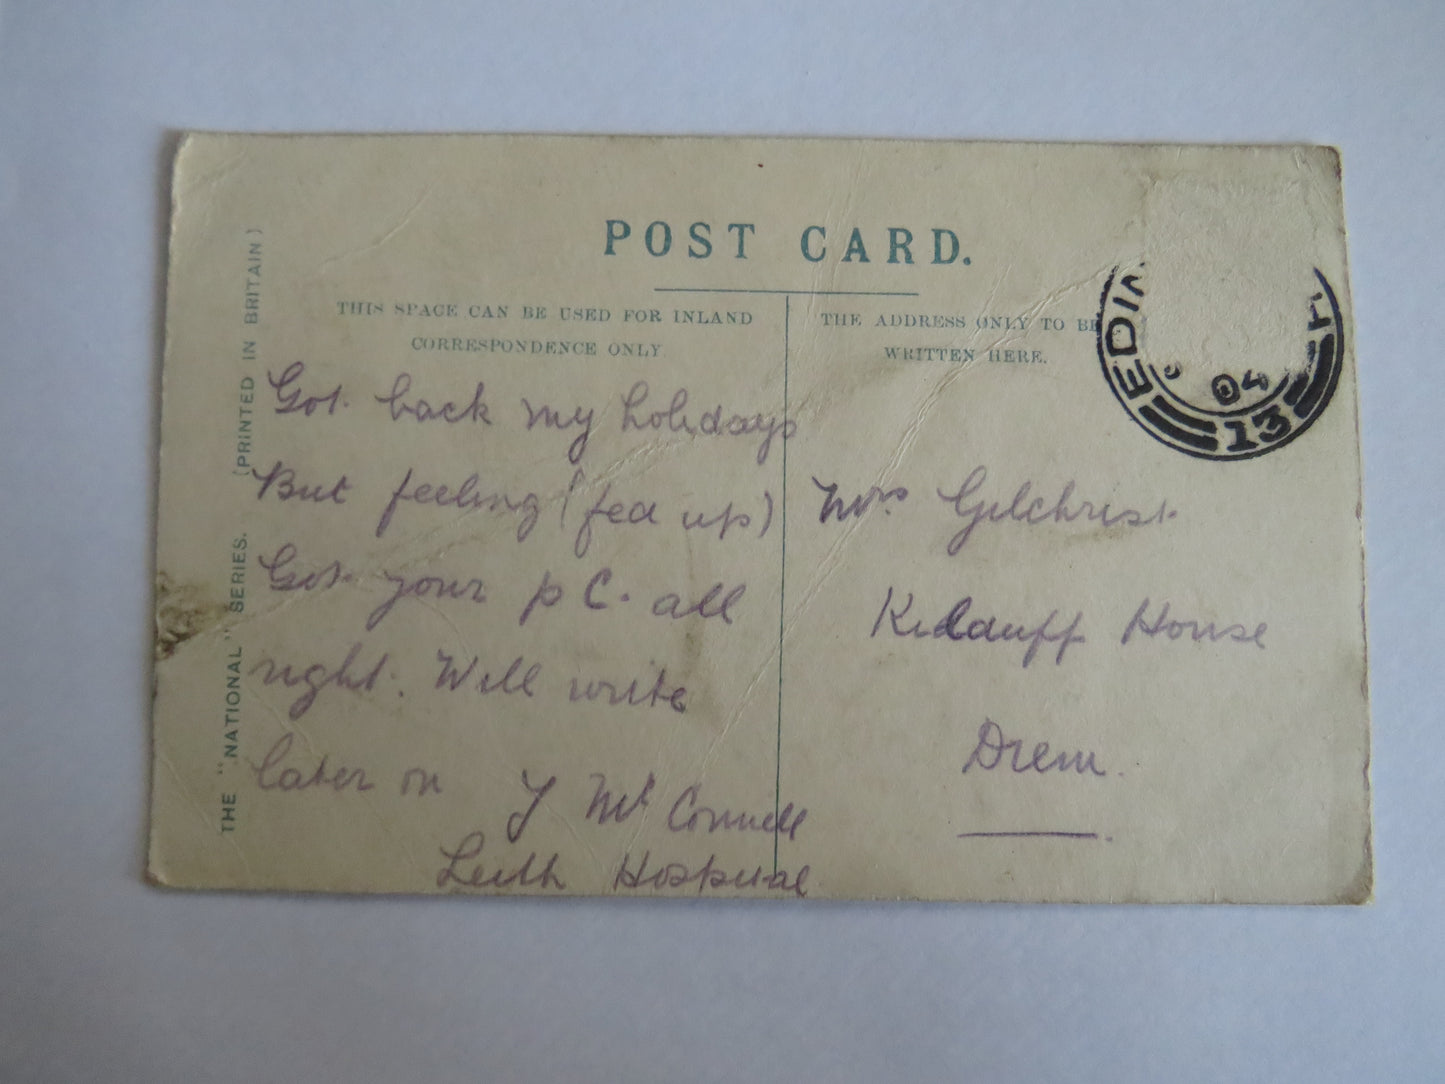 POST CARD.
THIS SPACE CAN BE USED FOR INLAND
CORRESPONDENCE ONLY.
THE ADDRESS ONLY TO BE
WRITTEN HERE.
THE "NATIONAL" SERIES. (PRINTED IN BRITAIN)
Got back my holidays
But feeling (fed up)
Got your p C. all
right. Will write
later on
J McConnell
Leith Hospital
Mrs Gilchrist
Kilduff House
Drem.
EDIN H
04
13